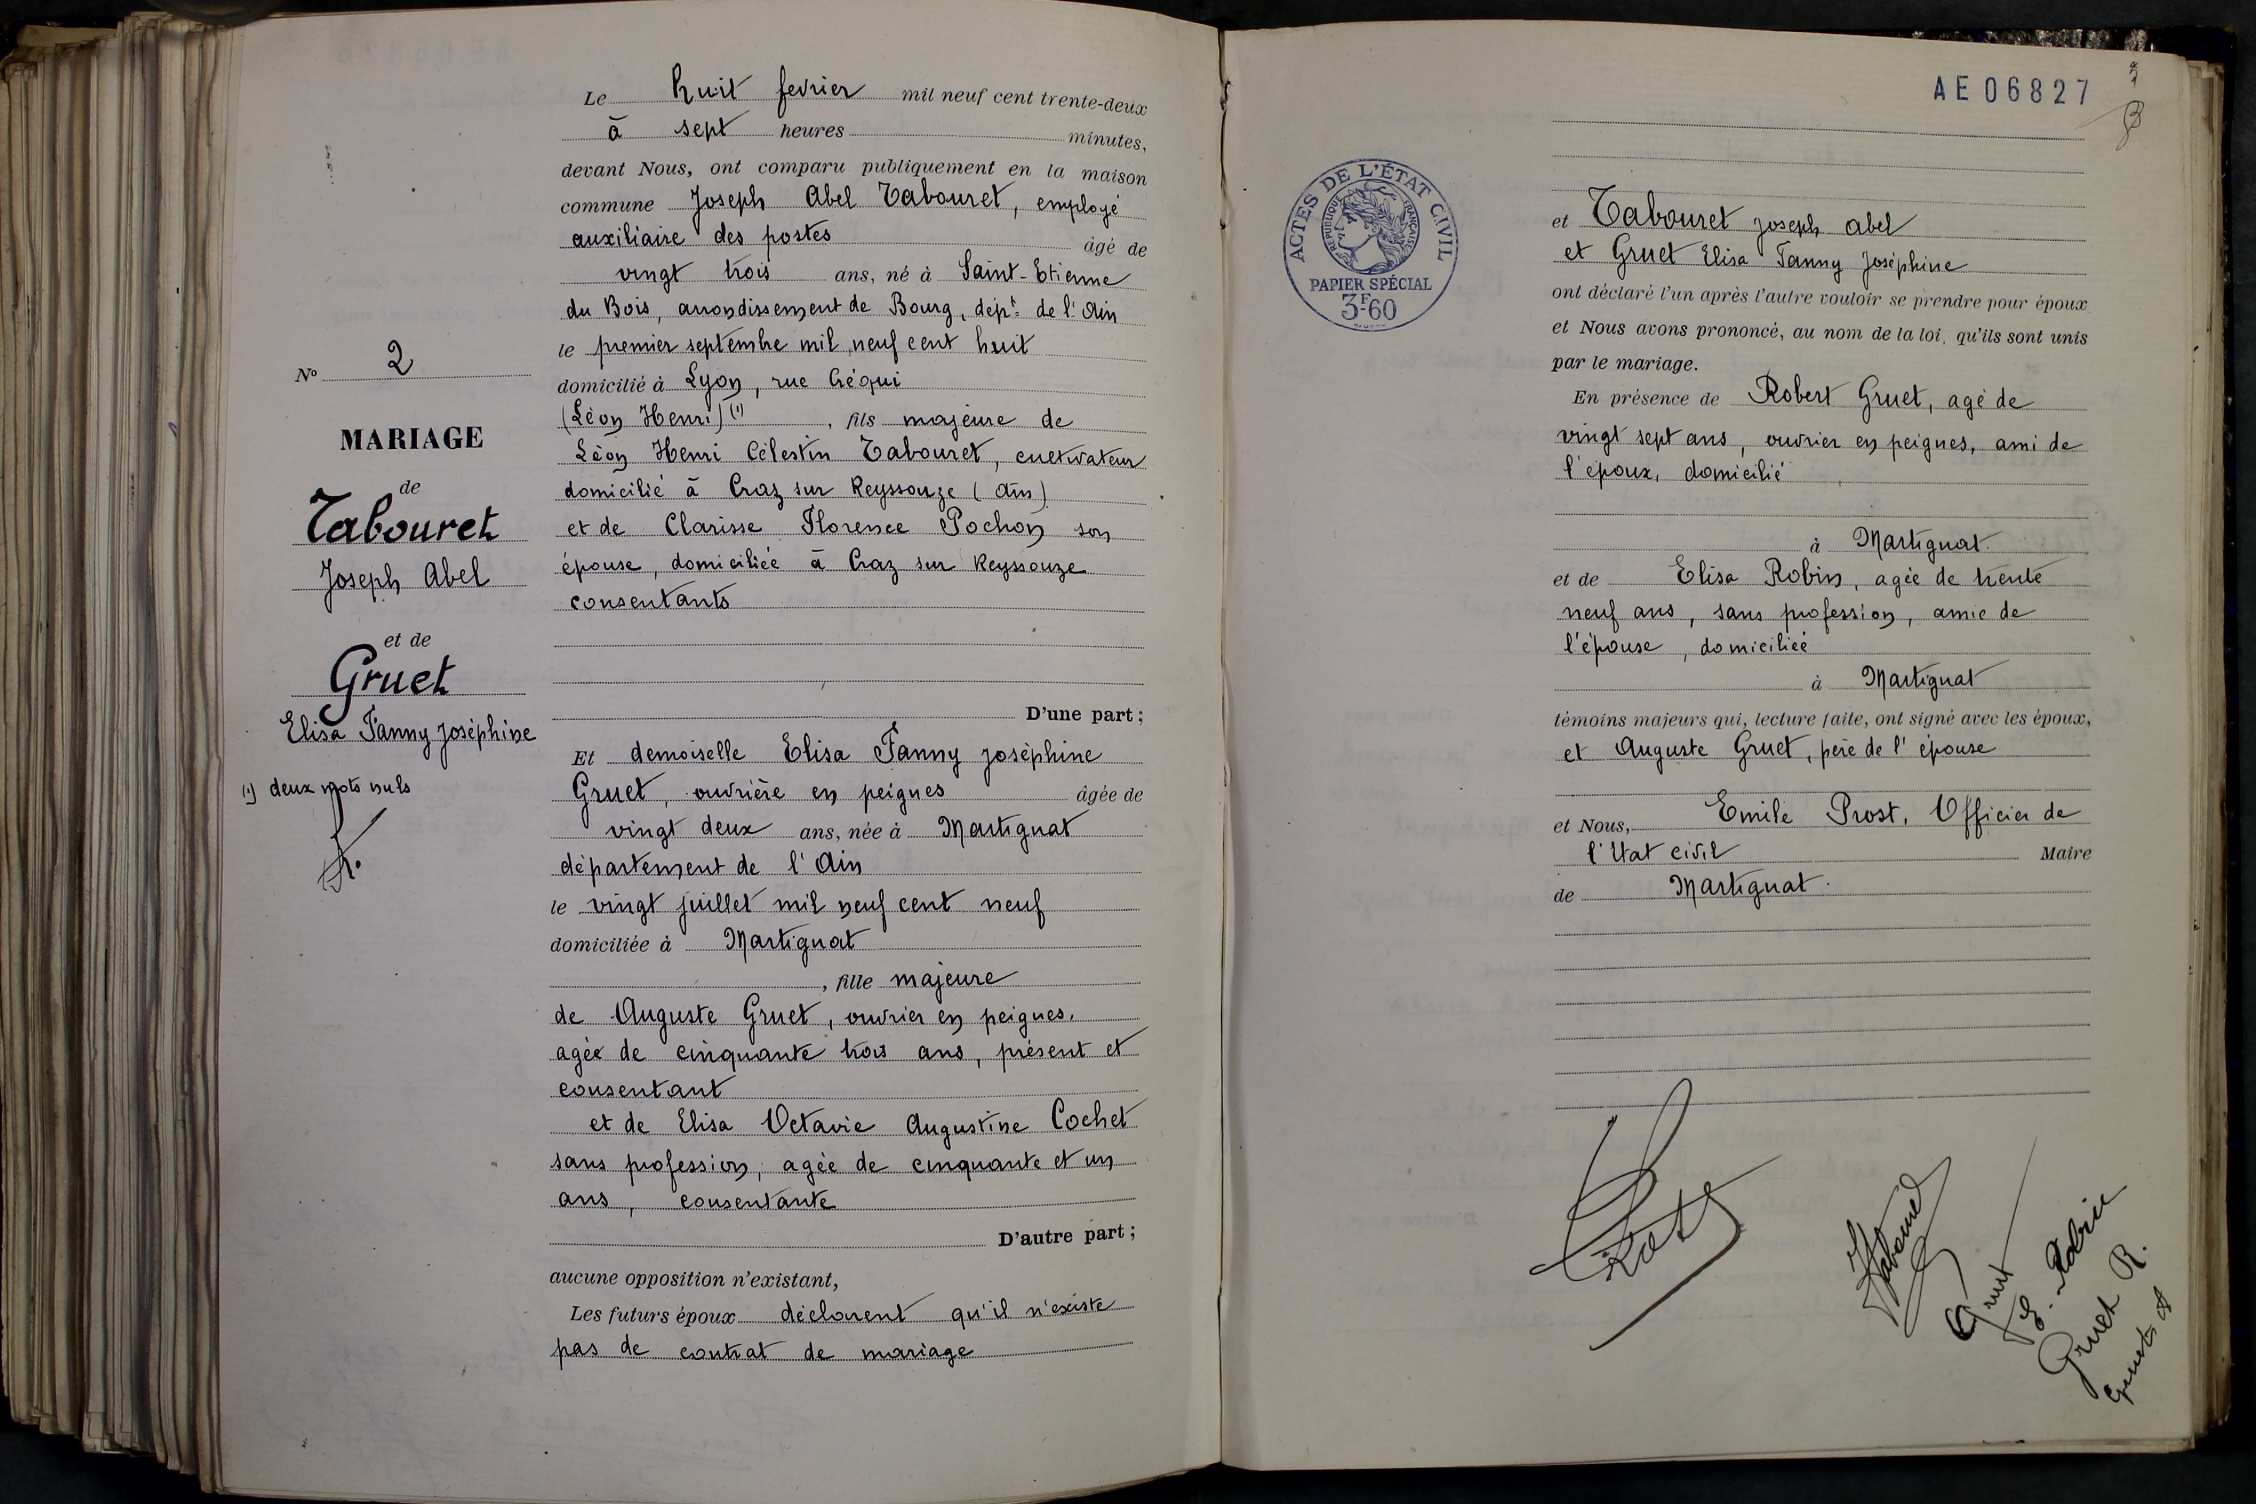 Le huit fevrier mil neuf cent trente-deux
à sept heures minutes,
devant Nous, ont comparu publiquement en la maison
commune Joseph Abel Tabouret, employé
auxiliaire des postes âgé de
vingt trois ans, né à Saint-Etienne
du Bois, arrondissement de Bourg, dépt de l'Ain
le premier septembre mil neuf cent huit
domicilié à Lyon, rue Créqui
(Léon Henri) (1), fils majeure de
Léon Henri Célestin Tabouret, cultivateur
domicilié à Craz sur Reyssouze (Ain)
et de Clarisse Florence Pochon son
épouse, domiciliée à Craz sur Reyssouze
consentants
D'une part;
Et demoiselle Elisa Fanny Joséphine
Gruet, ouvrière en peignes âgée de
vingt deux ans, née à Martignat
département de l'Ain
le vingt juillet mil neuf cent neuf
domiciliée à Martignat
, fille majeure
de Auguste Gruet, ouvrier en peignes,
agée de cinquante trois ans, présent et
consentant
et de Elisa Octavie Augustine Cochet
sans profession, agée de cinquante et un
ans, consentante
D'autre part;
aucune opposition n'existant,
Les futurs époux déclarent qu'il n'existe
pas de contrat de mariage
No 2
MARIAGE
de
Tabouret
Joseph Abel
et de
Gruet
Elisa Fanny Joséphine
(1) deux mots nuls
AE06827
ACTES DE L'ÉTAT CIVIL
RÉPUBLIQUE FRANÇAISE
PAPIER SPÉCIAL
3F60
et Tabouret Joseph Abel
et Gruet Elisa Fanny Joséphine
ont déclaré l'un après l'autre vouloir se prendre pour époux
et Nous avons prononcé, au nom de la loi, qu'ils sont unis
par le mariage.
En présence de Robert Gruet, agé de
vingt sept ans, ouvrier en peignes, ami de
l'époux, domicilié
à Martignat
et de Elisa Robin, agée de trente
neuf ans, sans profession, amie de
l'épouse, domiciliée
à Martignat
témoins majeurs qui, lecture faite, ont signé avec les époux,
et Auguste Gruet, père de l'épouse
et Nous, Emile Prost, Officier de
l'Etat civil Maire
de Martignat.
Prost
Tabouret
Gruet
E. Robin
Gruet R.
Gruet A